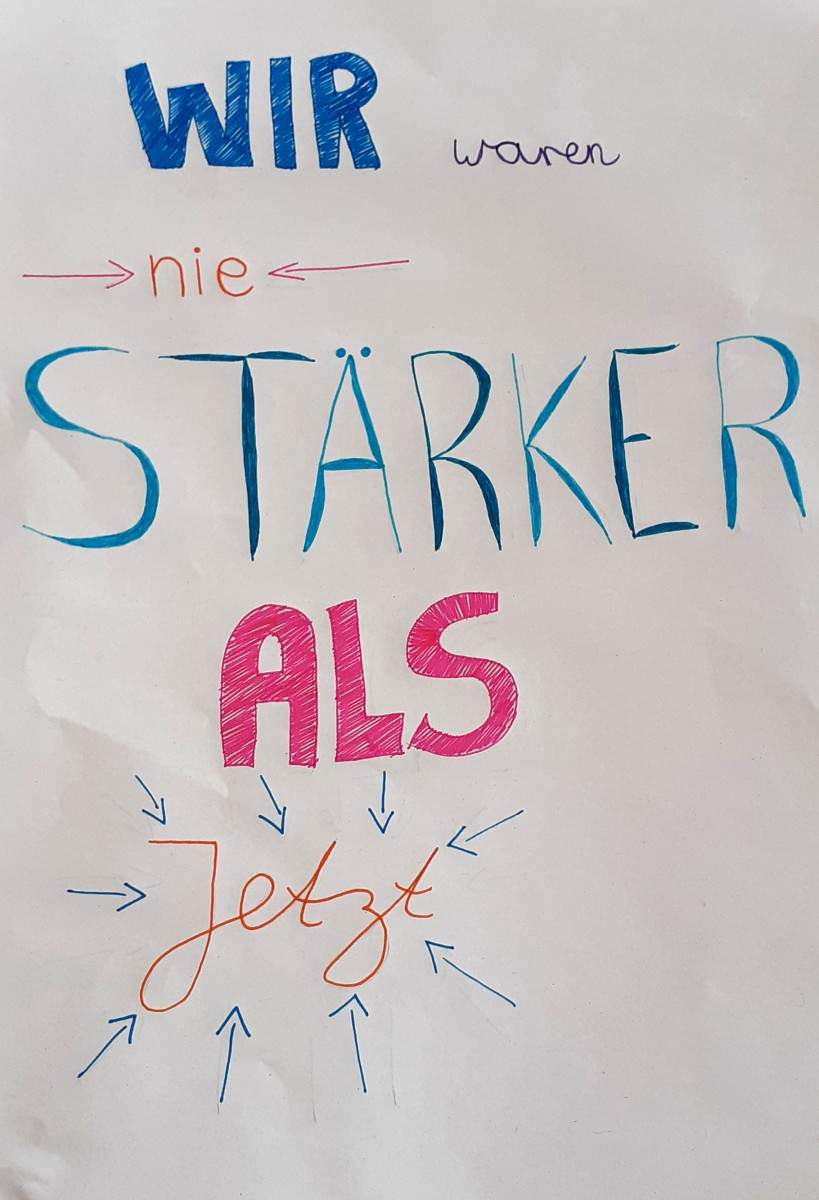 WIR waren
nie
STÄRKER
ALS
Jetzt